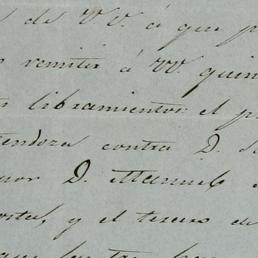 de V.V. á que p
remitir á VV. quin
libramientos: el p
endoza contra D.
or D. Manuel
osta, y el tercero de